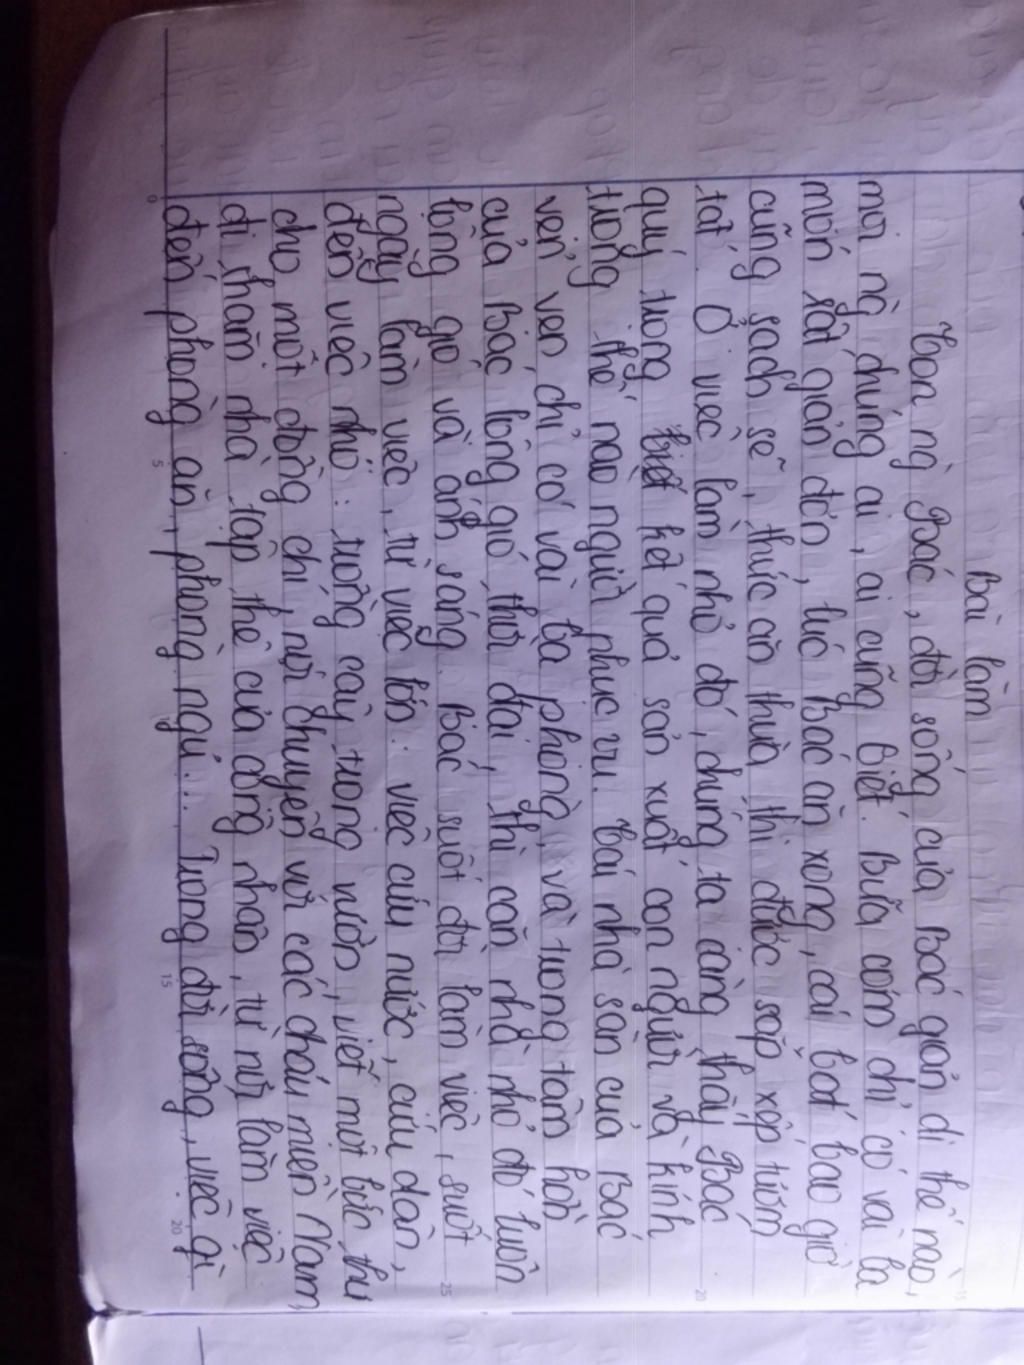 Bài làm
Con người Bác, đời sống của Bác giản dị thế nào,
mọi người chúng ai, ai cũng biết. Bữa cơm chỉ có vài ba
món rất giản đơn, lúc Bác ăn xong, cái bát bao giờ
cũng sạch sẽ, thức ăn thừa thì được sắp xếp tươm
tất. Ở việc làm nhỏ đó, chúng ta càng thấy Bác
quý trọng kết quả sản xuất con người và kính
trọng thế nào người phục vụ. Cái nhà sàn của Bác
vẻn vẹn chỉ có vài ba phòng, và trong tâm hồn
của Bác lộng gió thời đại, thì căn nhà nhỏ đó luôn
lộng gió và ánh sáng. Bác suốt đời làm việc, suốt
ngày làm việc, từ việc lớn: việc cứu nước, cứu dân,
đến việc nhỏ: trồng cây trong vườn, viết một bức thư
cho một đồng chí, nói chuyện với các cháu miền Nam,
đi thăm nhà tập thể của công nhân, từ nơi làm việc
đến phòng ăn, phòng ngủ... Trong đời sống, việc gì
0
5
15
20
25
20
15